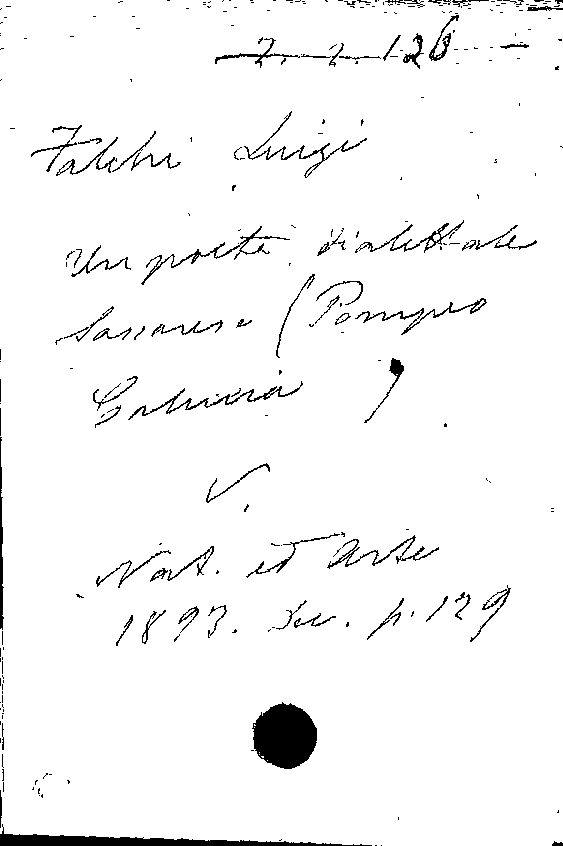 2. 2. 126 -
Falchi Luigi
Un poeta dialettale
Sassarese (Pompeo
Calvia)
V.
Nat. et Arte
1893. Dec. p. 129